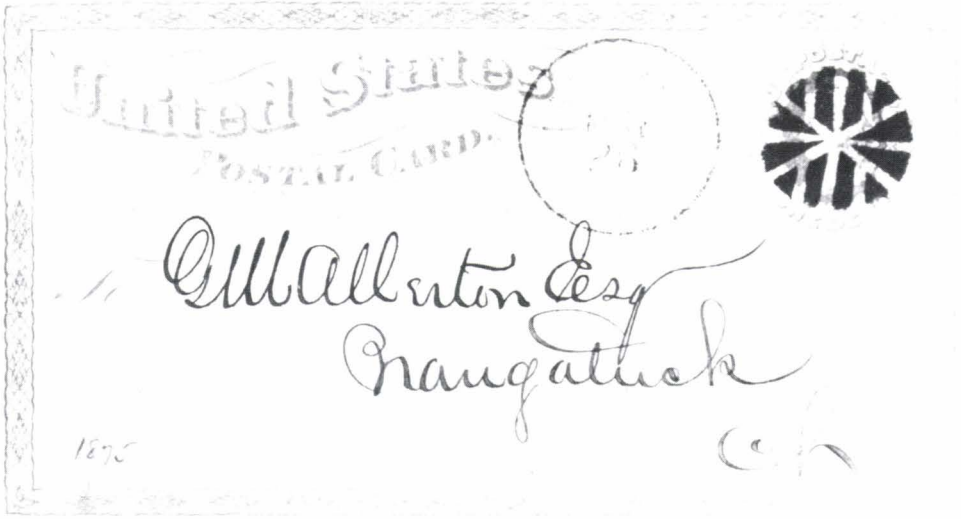 United States
POSTAL CARD.
26
G W Allerton Esq
Naugatuck
Ct
1875